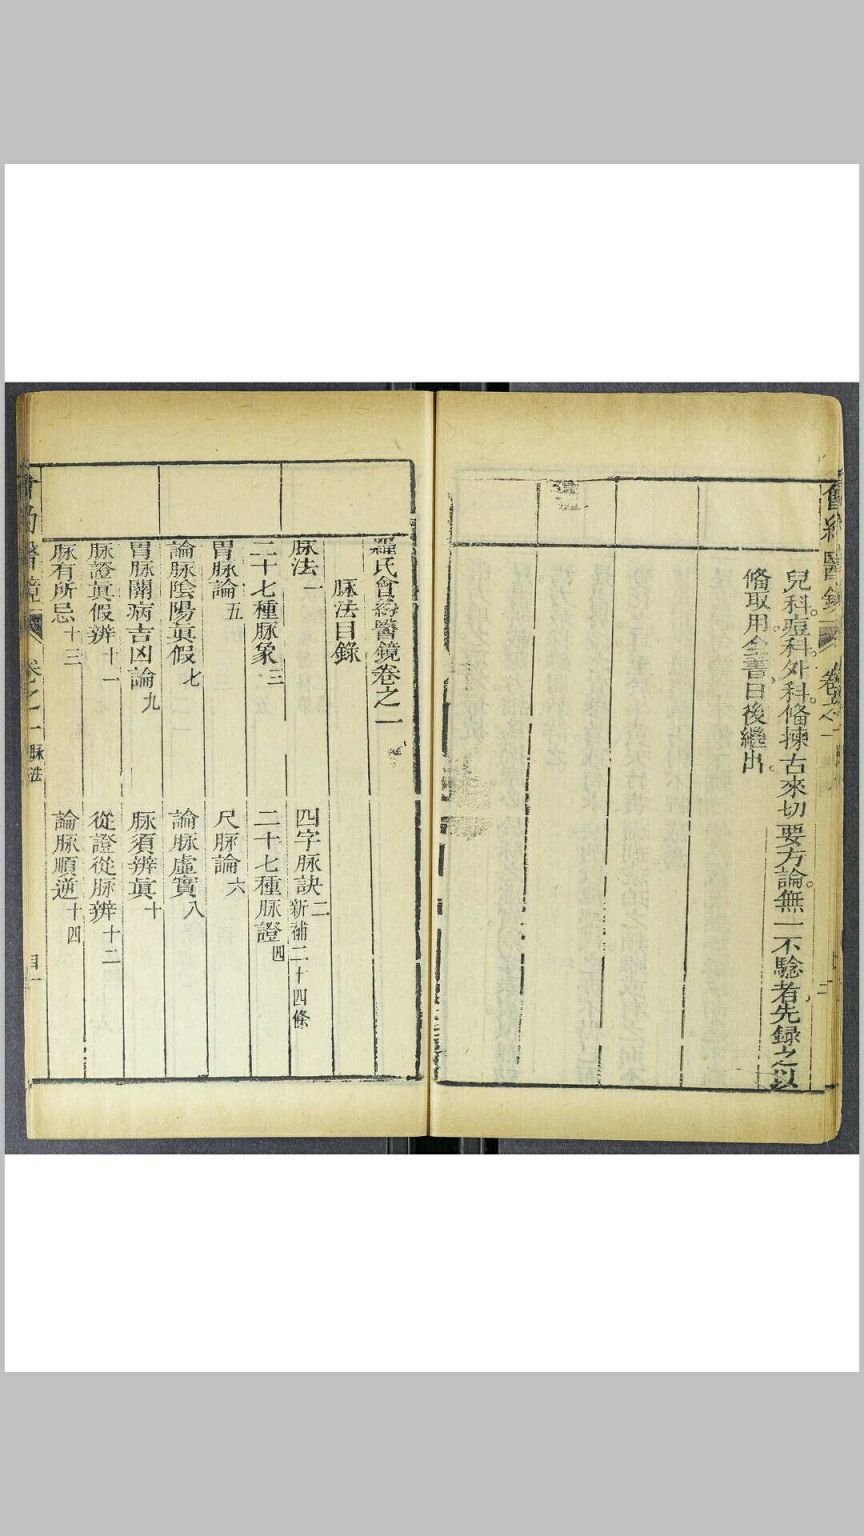 會約醫鏡
卷之一
兒科。痘科。外科。俻揀古來切要方論。無一不騐者。先録之以
俻取用。全書日後繼出。
羅氏會約醫鏡卷之一
脉法目錄
脉法一 四字脉訣二新補二十四條
二十七種脉象三 二十七種脉證四
胃脉論五 尺脉論六
論脉陰陽眞假七 論脉虛實八
胃脉關病吉凶論九 脉須辨眞十
脉證眞假辨十一 從證從脉辨十二
脉有所忌十三 論脉順逆十四
會約醫鏡
卷之一 脉法
目一